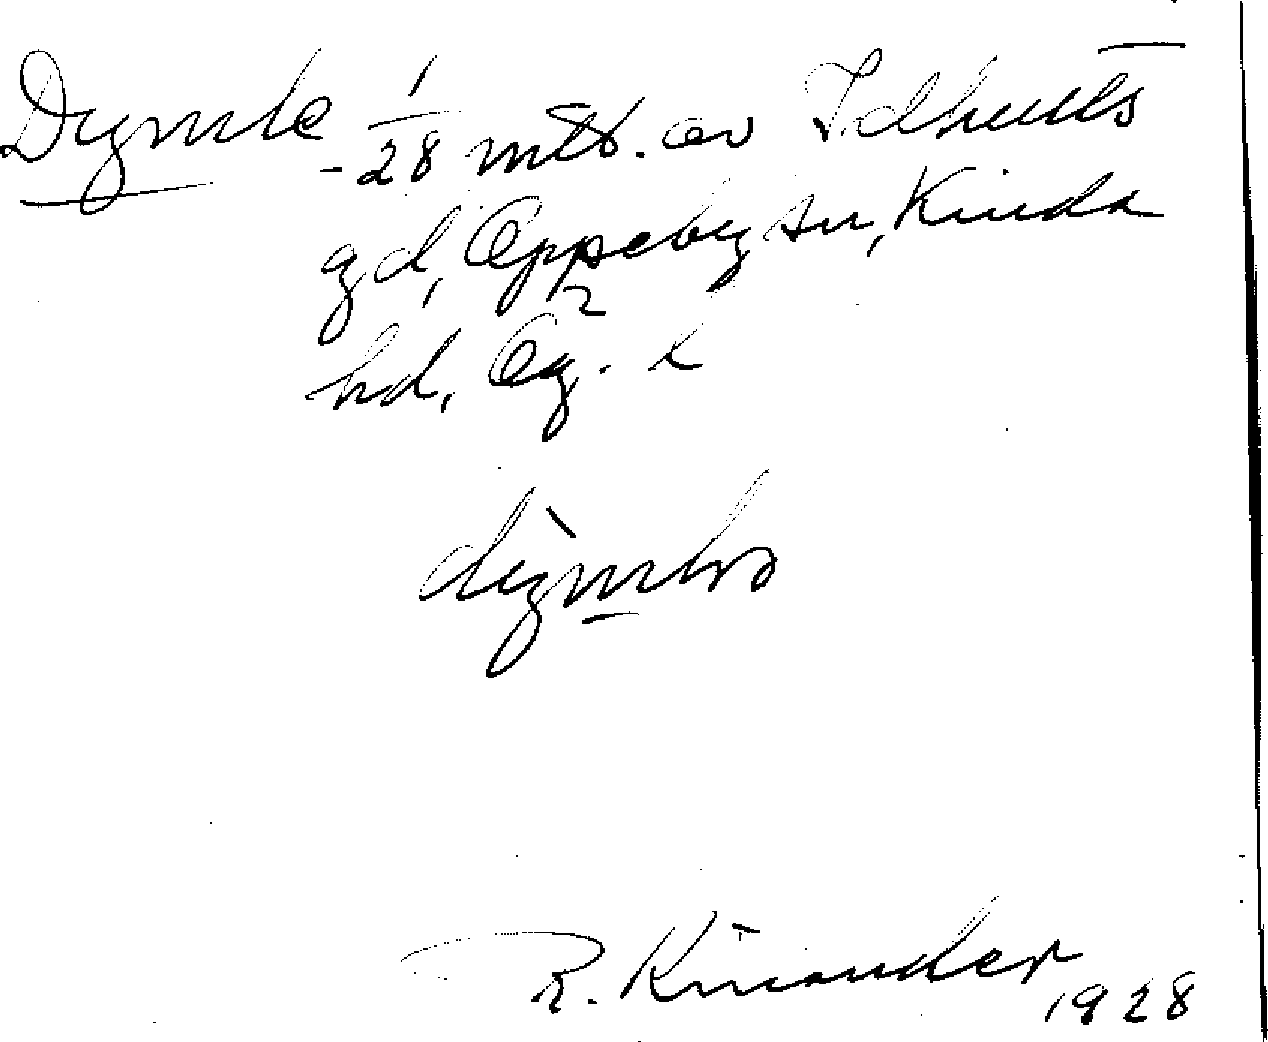 Dymle 1/28 mtl. av Idhults
gd, Oppeby sn, Kinda
hd, Ög. L
dỳmlɷ
R. Kinander
1928